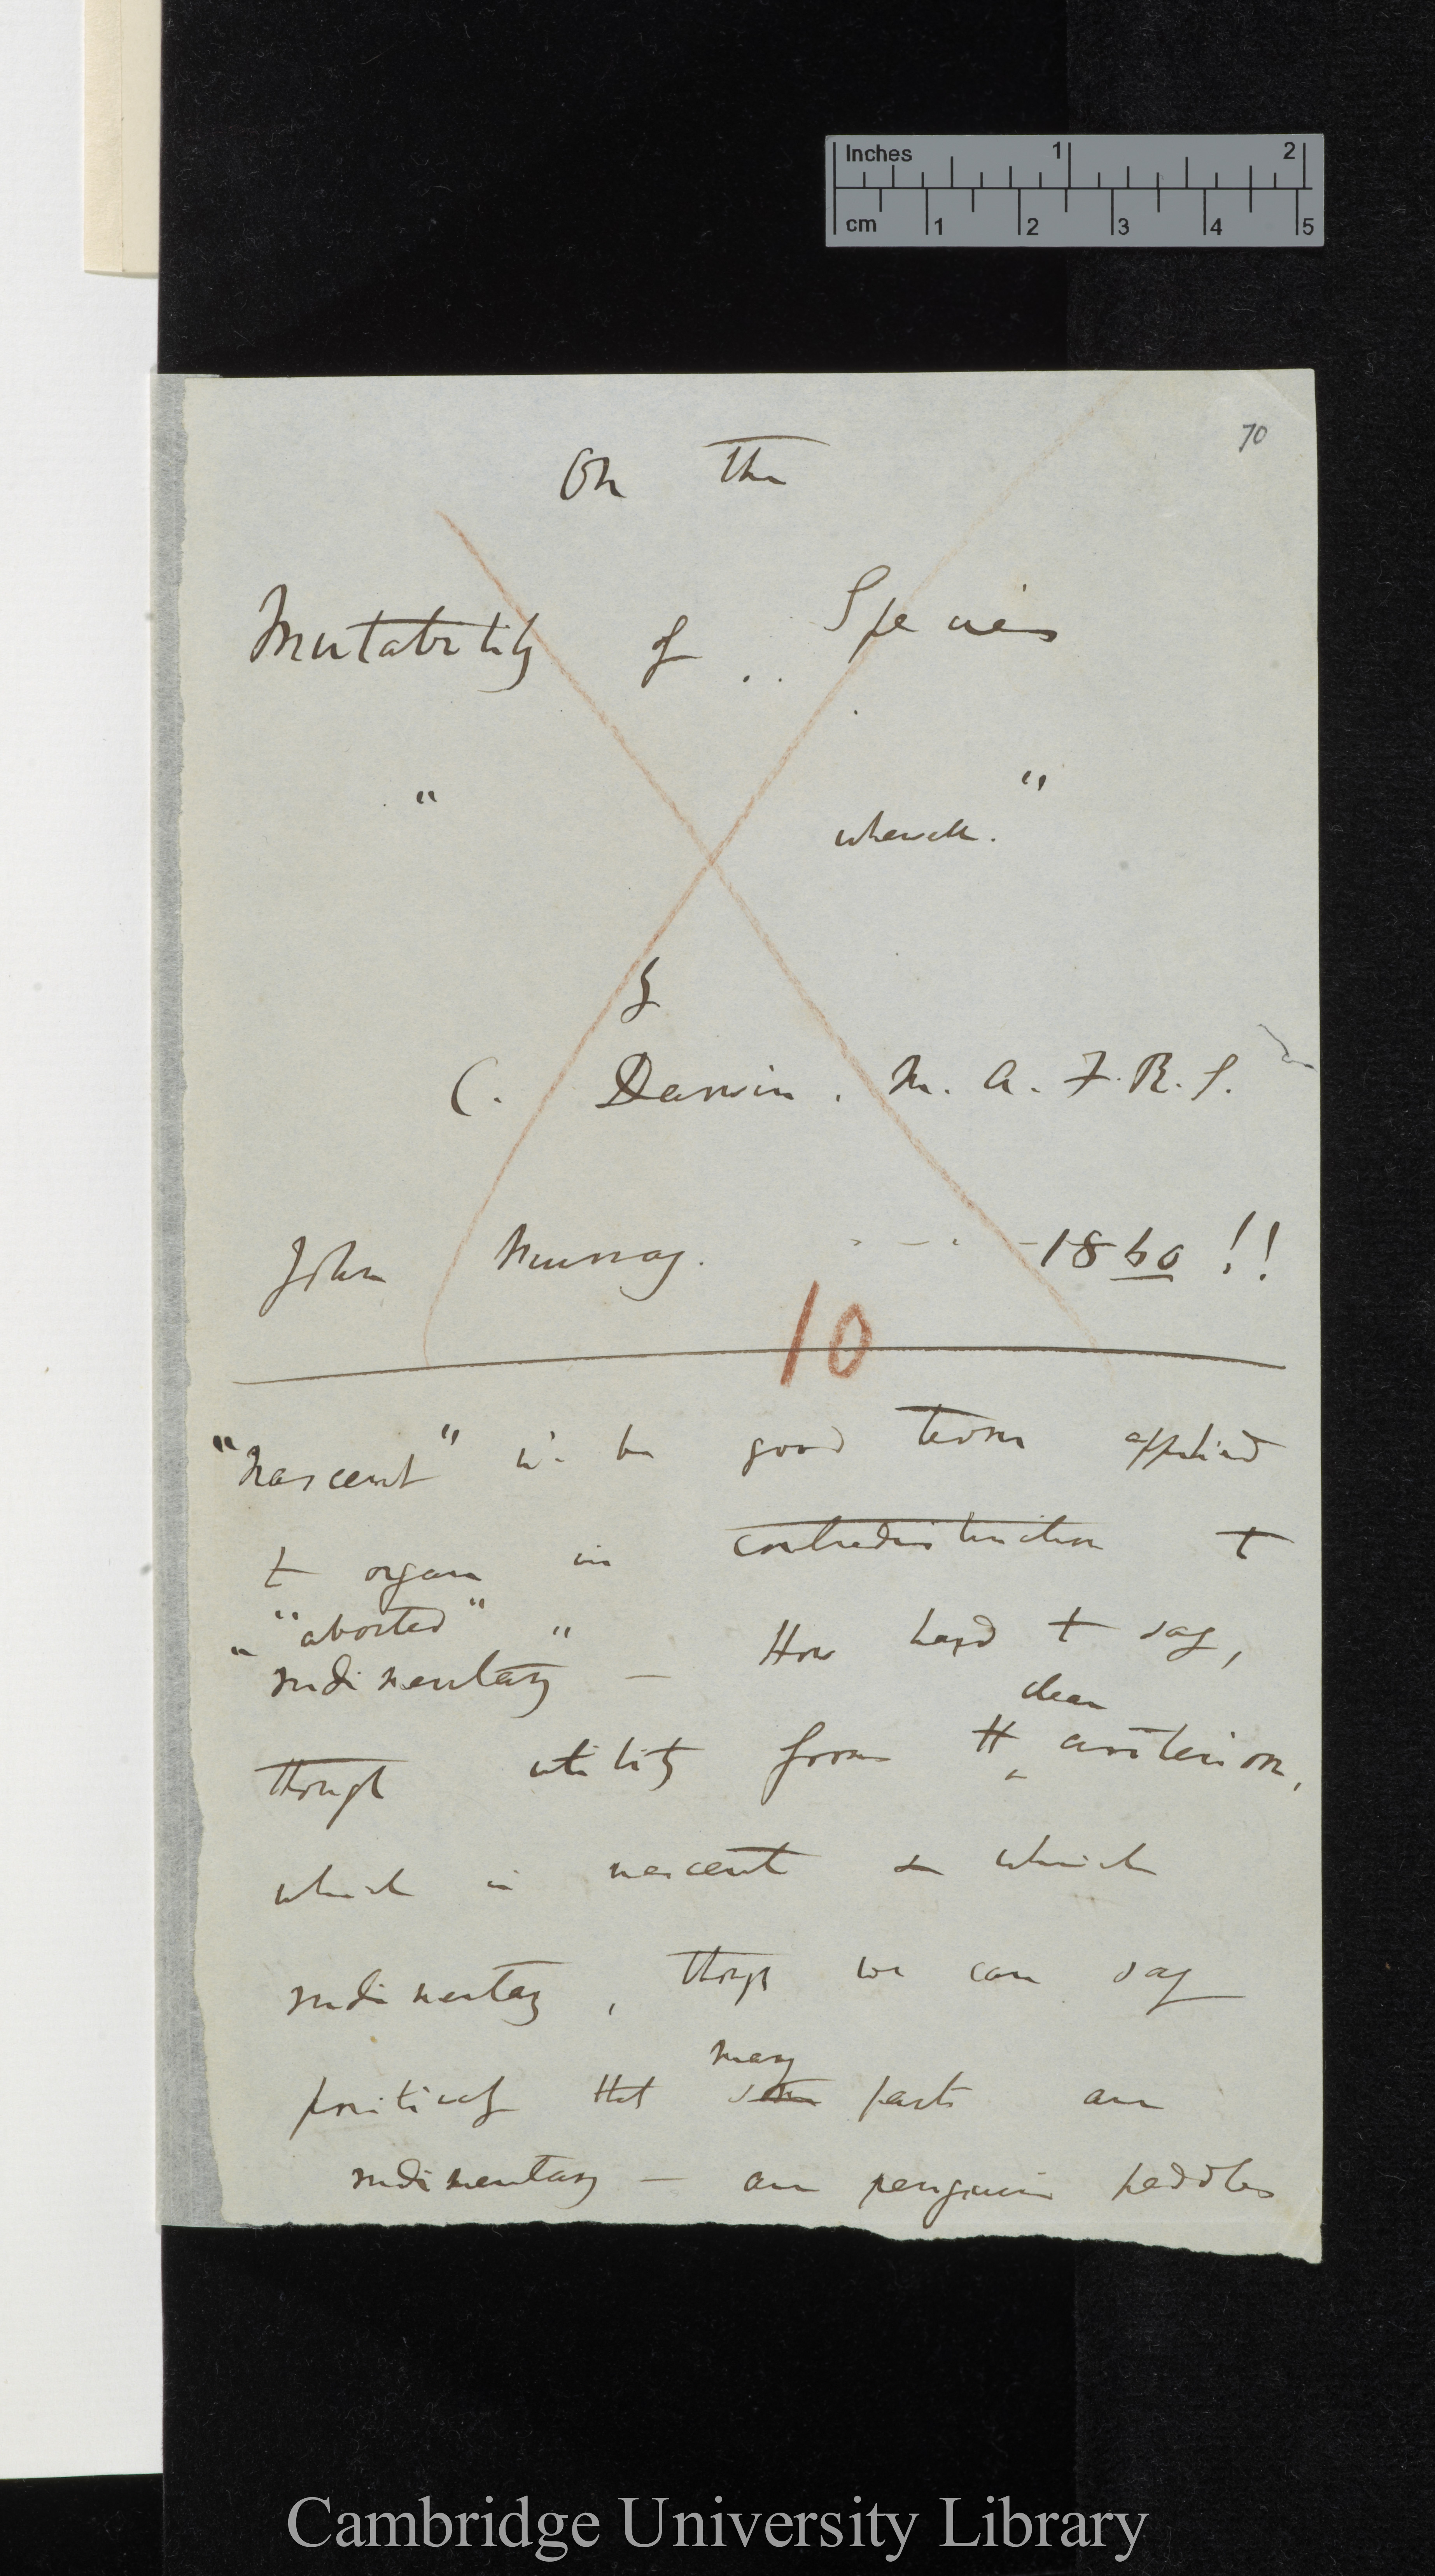 Inches 1 2
cm 1 2 3 4 5
70
On the
Mutability of Species
" Whewell. "
by
C. Darwin. M. A. F. R. S. &c
John Murray. 1860 !!
10
"Nascent" wd. be good term applied
to organ in contradistinction to
"aborted" "
" rudimentary — How hard to say,
clear
though utility from the criterion,
which is nascent & which
rudimentary, though we can say
many
positively that some parts are
rudimentary — are penguin paddles
Cambridge University Library